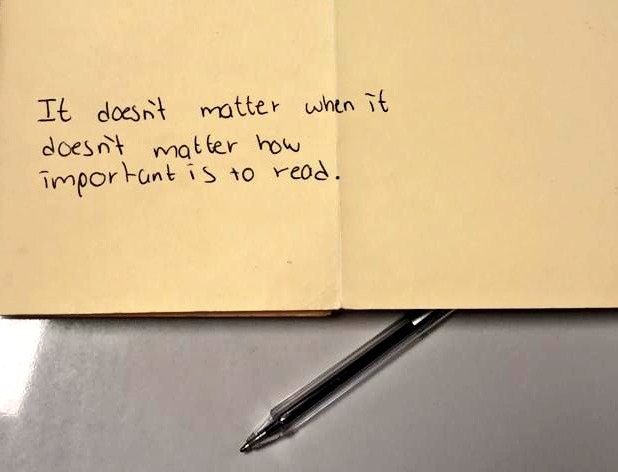 It doesn't matter when it
doesn't matter how
important is to read.